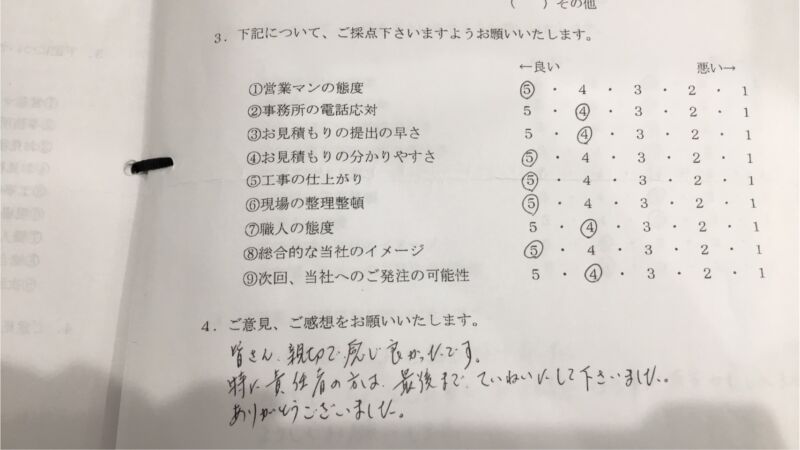 ( )その他
3. 下記について、ご採点下さいますようお願いいたします。
←良い 悪い→
①営業マンの態度 5 ・ 4 ・ 3 ・ 2 ・ 1
②事務所の電話応対 5 ・ 4 ・ 3 ・ 2 ・ 1
③お見積もりの提出の早さ 5 ・ 4 ・ 3 ・ 2 ・ 1
④お見積もりの分かりやすさ 5 ・ 4 ・ 3 ・ 2 ・ 1
⑤工事の仕上がり 5 ・ 4 ・ 3 ・ 2 ・ 1
⑥現場の整理整頓 5 ・ 4 ・ 3 ・ 2 ・ 1
⑦職人の態度 5 ・ 4 ・ 3 ・ 2 ・ 1
⑧総合的な当社のイメージ 5 ・ 4 ・ 3 ・ 2 ・ 1
⑨次回、当社へのご発注の可能性 5 ・ 4 ・ 3 ・ 2 ・ 1
4. ご意見、ご感想をお願いいたします。
皆さん、親切で感じ良かったです。
特に責任者の方は、最後まで、ていねいにして下さいました。
ありがとうございました。